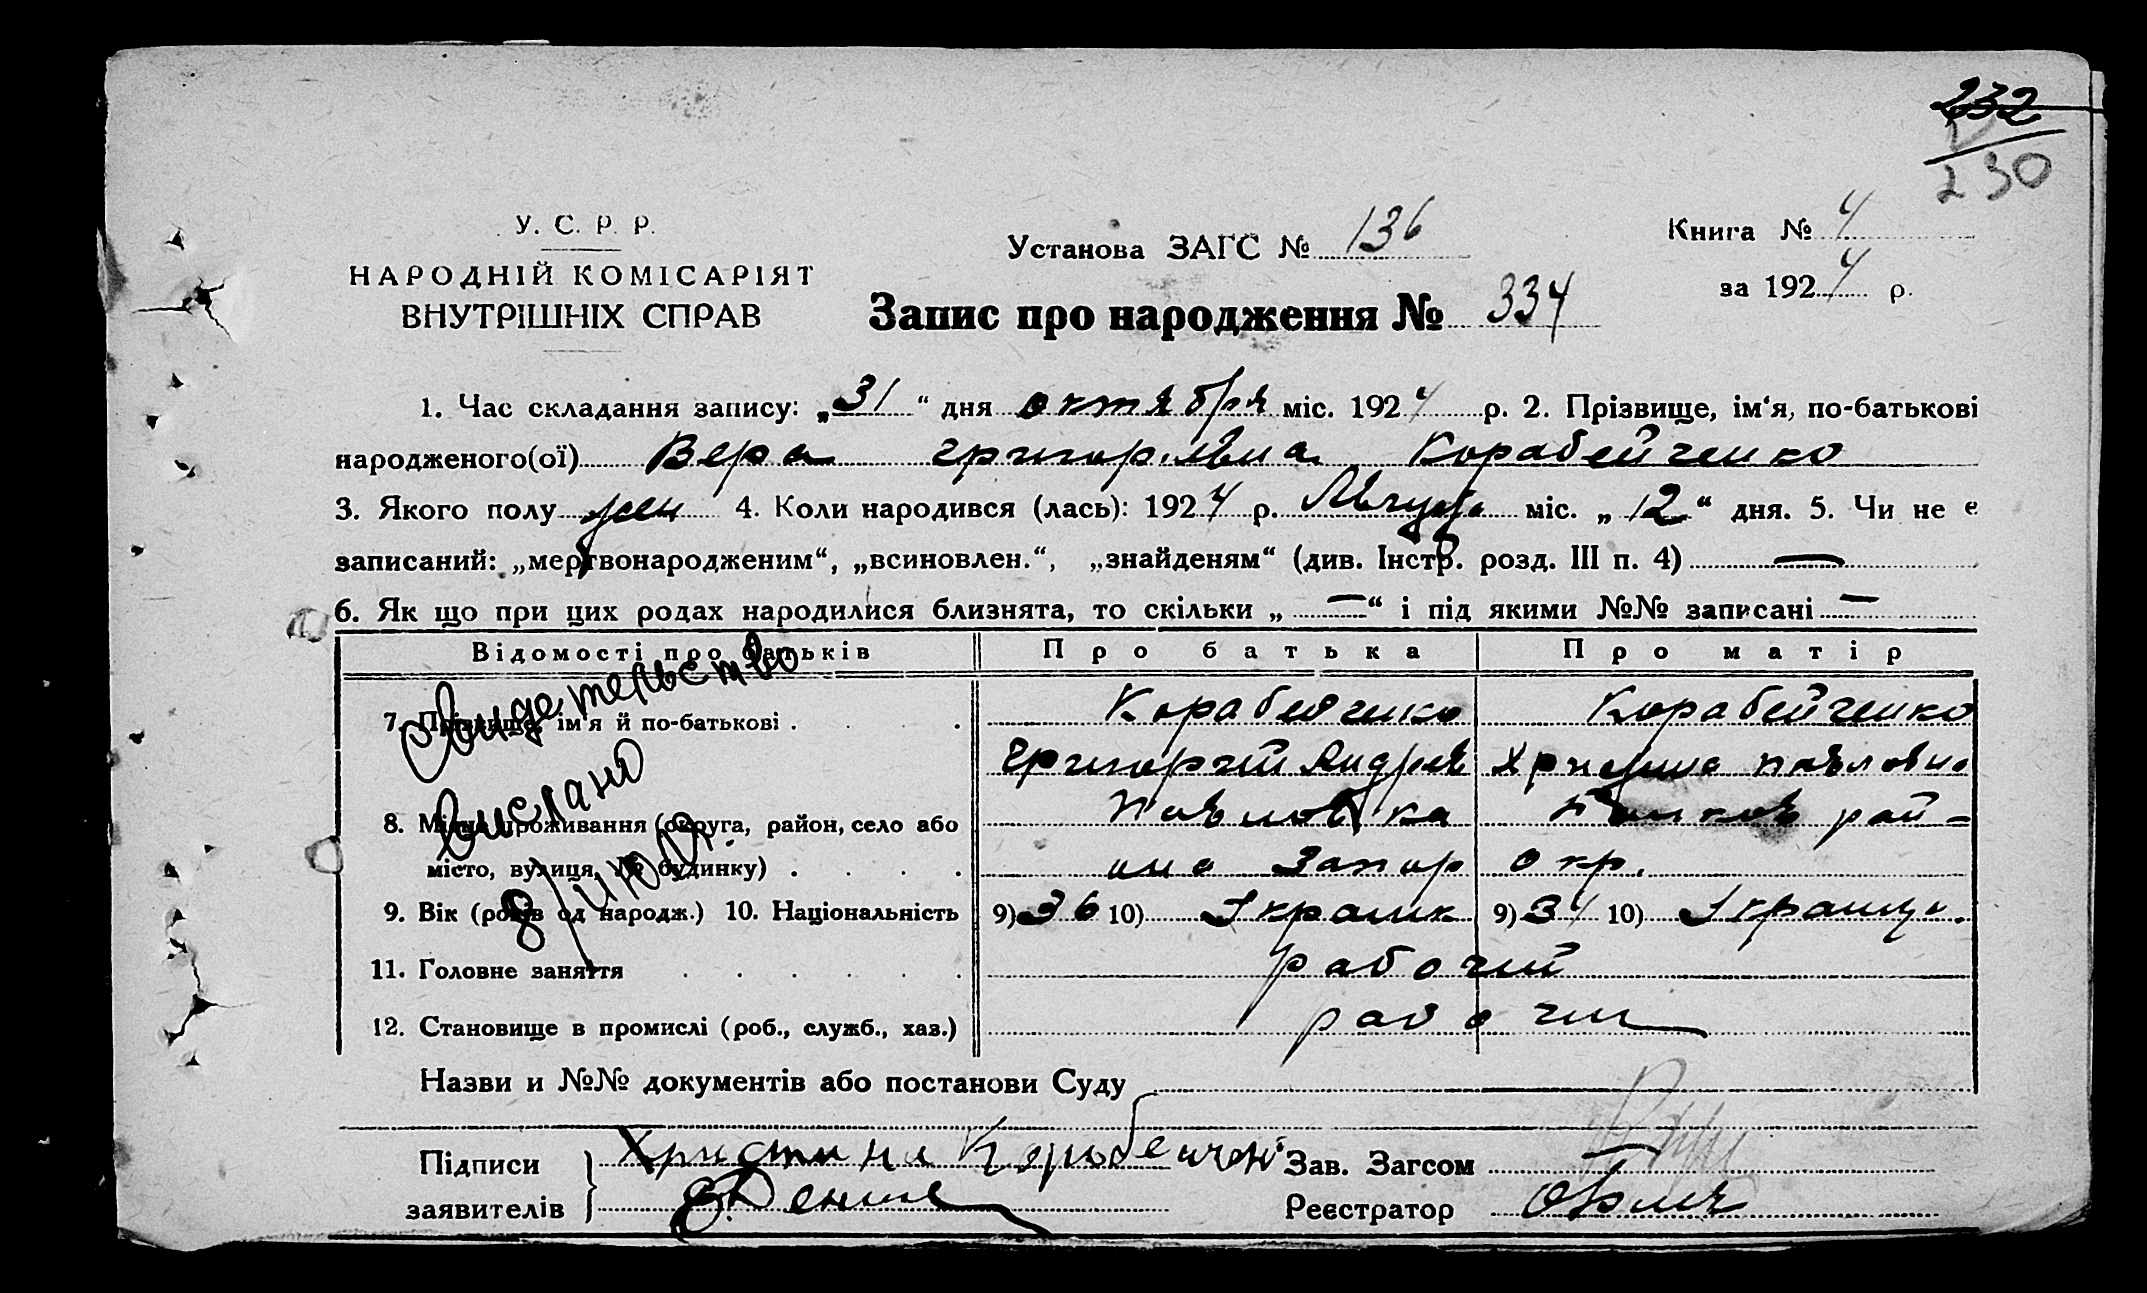 232
230
У. С. Р. Р.
НАРОДНІЙ КОМІСАРІЯТ
ВНУТРІШНІХ СПРАВ
Установа ЗАГС № 136
Книга № 4
за 1924 р.
Запис про народження № 334
1. Час складання запису: „31“ дня октября міс. 1924 р. 2. Прізвище, ім‘я, по-батькові
народженого(ої) Вера Григорьевна Корабейченко
3. Якого полу жен 4. Коли народився (лась): 1924 р. Августа міс. „12“ дня. 5. Чи не є
записаний: „мертвонародженим“, „всиновлен.“, „знайденям“ (див. Інстр. розд. III п. 4) —
6. Як що при цих родах народилися близнята, то скільки „—“ і під якими №№ записані —
Відомості про батьків Про батька Про матір
7. Прізвище, ім‘я й по-батькові Корабейченко Корабейченко
Григорий Андрев Христина Павловн.
8. Місце проживання (округа, район, село або Павловка рай-
місто, вулиця, № будинку) Запор окр.
9. Вік (років од народж.) 10. Національність 9) 36 10) Украинк 9) 34 10) Украинц
11. Головне заняття рабочий
12. Становище в промислі (роб., служб., хаз.) рабочий
Свидетельство
выслано
8/июля
Назви и №№ документів або постанови Суду
Підписи Христина Корабейченк Зав. Загсом
заявителів Реєстратор